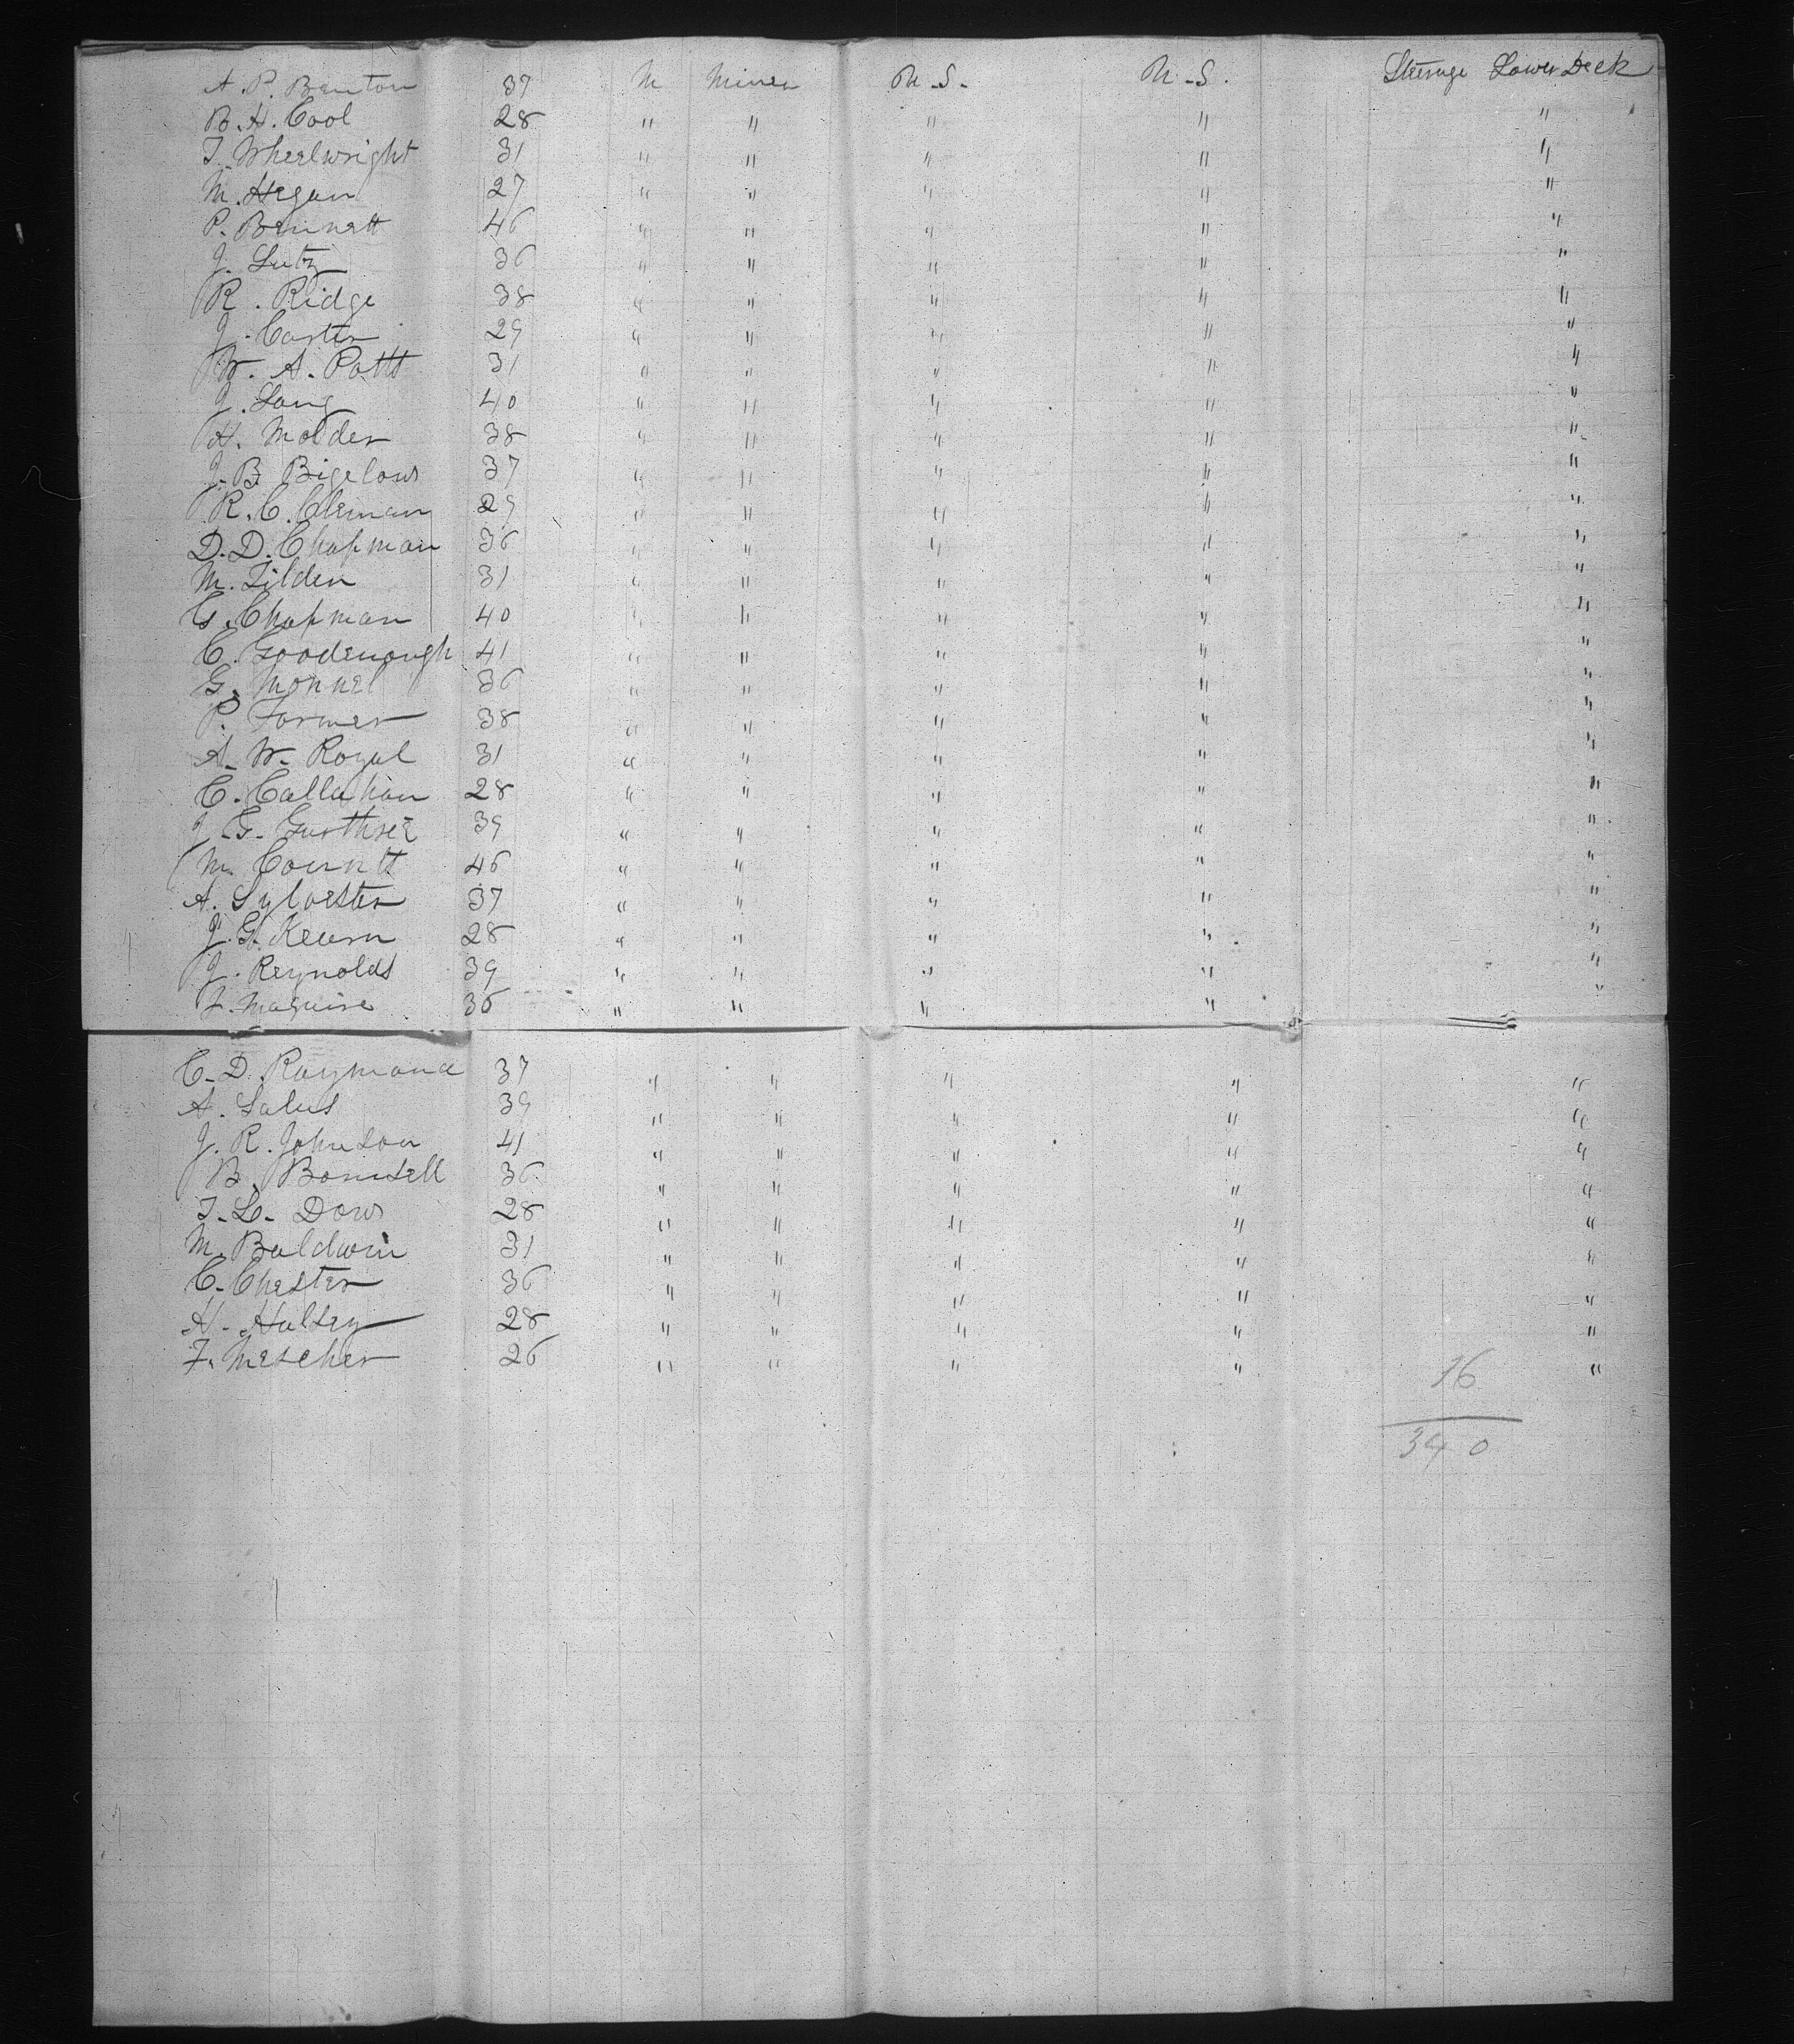 A. P. Benton 37 M Miner U.S. U.S. Steerage Lower Deck
B. H. Cool 28 " " " " "
T. Wheelwright 31 " " " " "
M. Hegan 27 " " " " "
P. Bennett 46 " " " " "
J. Lutz 36 " " " " "
R. Ridge 38 " " " " "
J. Carter 29 " " " " "
W. A. Potts 31 " " " " "
J. Long 40 " " " " "
H. Molder 38 " " " " "
J. B. Bigelow 37 " " " " "
R. C. Cleman 29 " " " " "
D. D. Chapman 36 " " " " "
M. Tilden 31 " " " " "
G. Chapman 40 " " " " "
C. Goodenough 41 " " " " "
G. Monnel 36 " " " " "
P. Farmer 38 " " " " "
A. W. Royal 31 " " " " "
C. Callahan 28 " " " " "
J. G. 39 " " " " "
M. 46 " " " " "
A. Sylvester 37 " " " " "
J. G. Kearn 28 " " " " "
J. Reynolds 39 " " " " "
F. Maguire 36 " " " " "
C. D. Raymond 37 " " " " "
A. Salus 39 " " " " "
J. R. Johnson 41 " " " " "
B. Bonesell 36 " " " " "
T. L. Dows 28 " " " " "
M. Baldwin 31 " " " " "
C. Chester 36 " " " " "
H. Halsey 28 " " " " "
F. Mescher 26 " " " " "
76
340